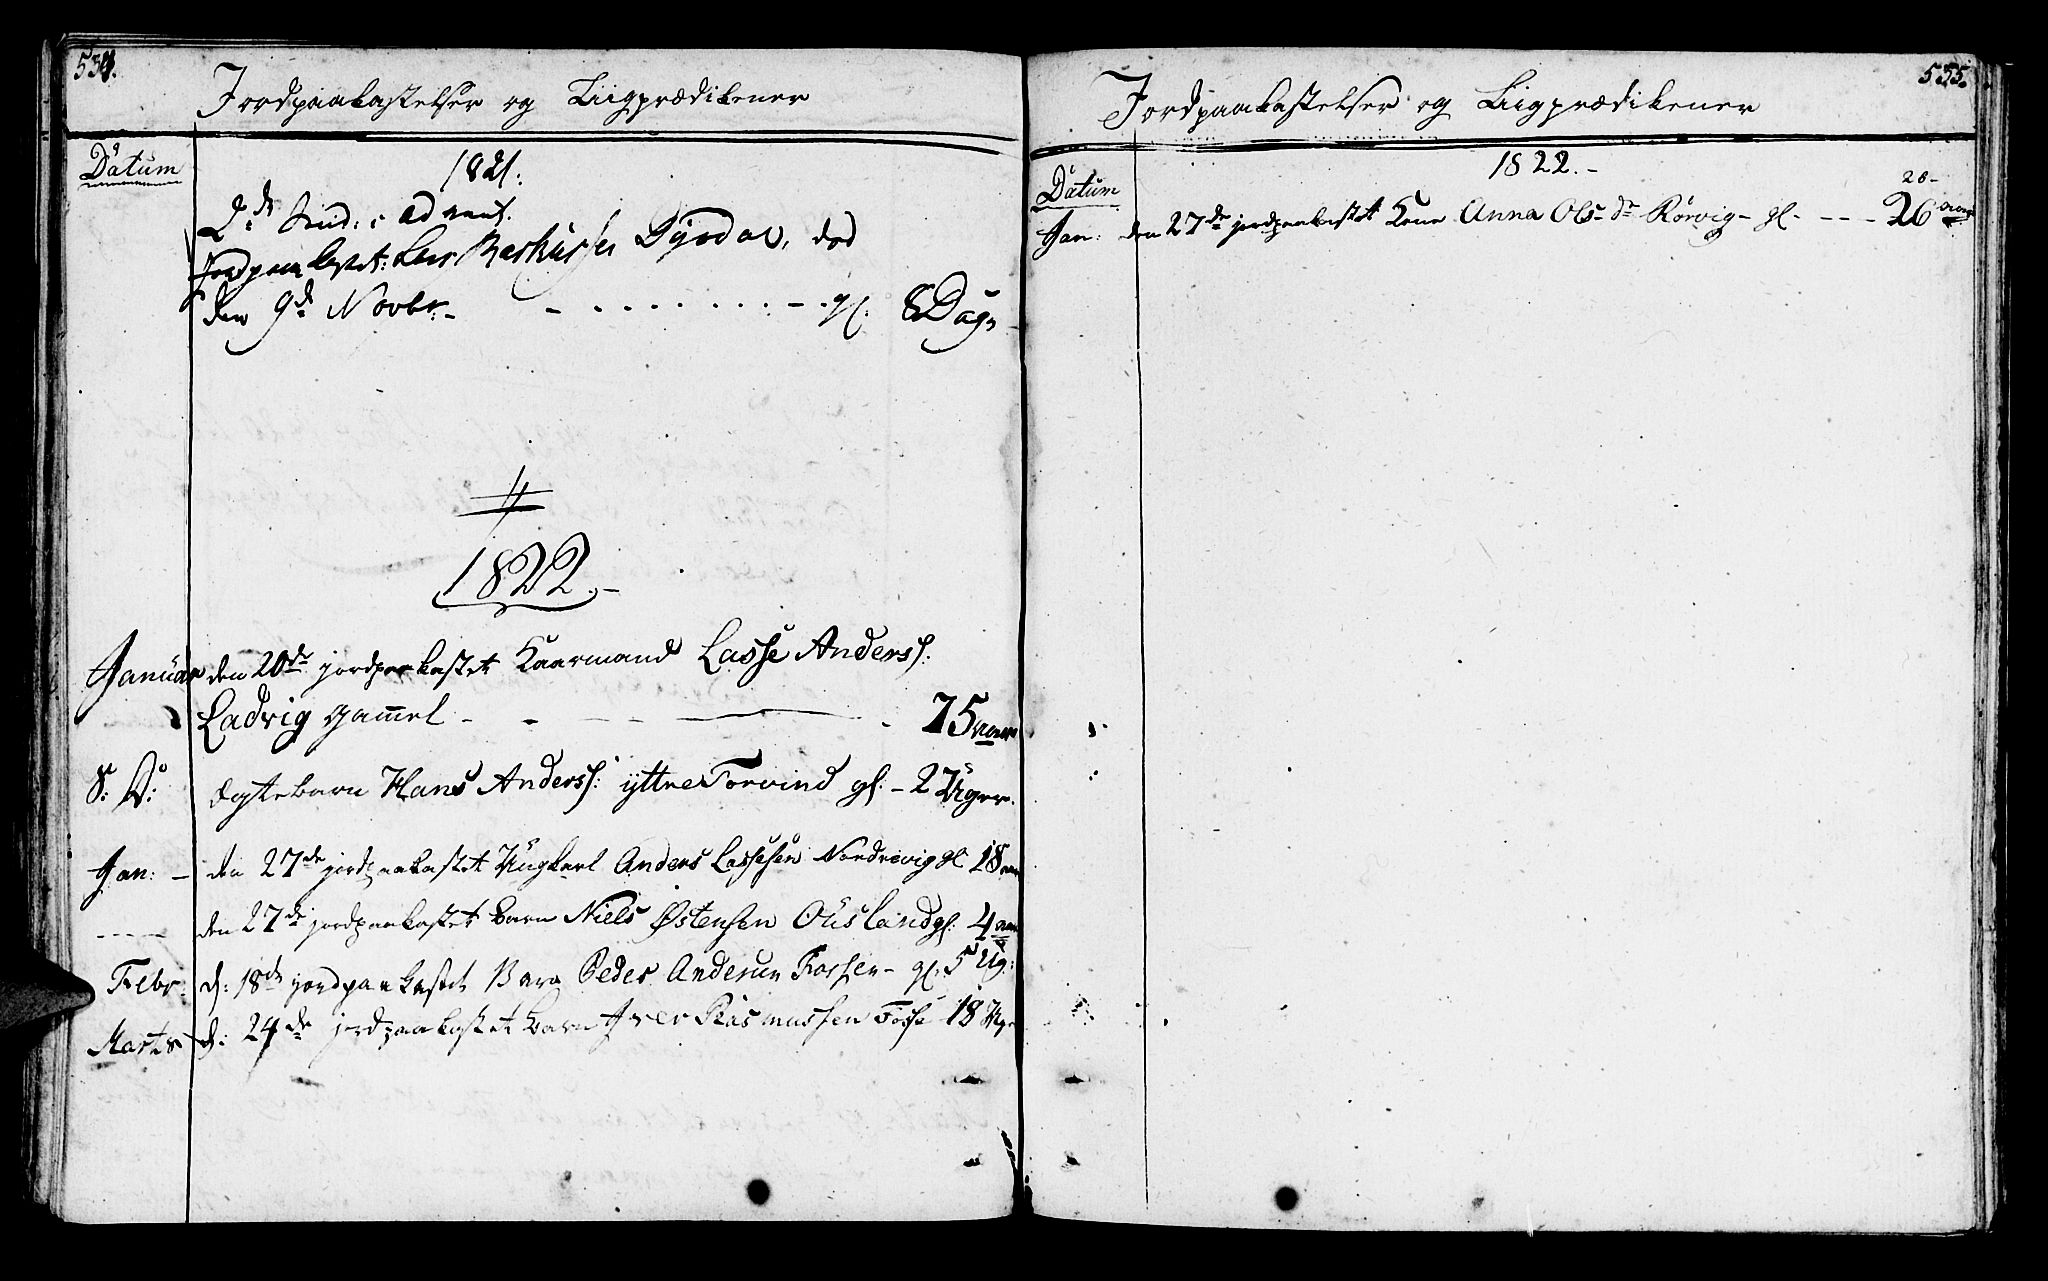 534.
Jordpaakastelser og Liigprædikener
Datum
1821.
2d Sønd: i Advent.
Jordpaakastet: Lars Rasmussen Dyrdal, død
den 9d Novbr. - - - gl. 8 Dage
1822.-
Januar den 20de jordpaakastet Kaarmand Lasse Anders:
Ladvig gammel - - - 75 aar
S: D: ægtebarn Hans Anderss: yttre Torvind gl: - 2 Uger.
Jan: - den 27de jordpaakastet Ungkarl Anders Lassesen Nordrevig gl 18 aar
----- den 27de jordpaakastet barn Niels Østensen Ousland gl: 4 aar
Febr: d: 18de jordpaakastet Barn Peder Andersen - gl. 5 Ug:
Marts d: 24de jordpaakastet barn Iver Rasmussen Fosse 18 Uger
555.
Jordpaakastelser og Liigprædikener
1822.-
Datum
28-
Jan: den 27de jordpaakastet Kone Anna Ols-dr Rørvig - gl- - - - 26 aar